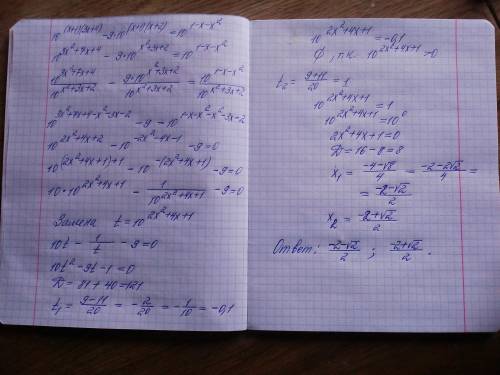 10^{(x+1)(3x+4)} - 9·10^{(x+1)(x+2)} = 10^{1-x-x²}
10^{3x²+7x+4} - 9·10^{x²+3x+2} = 10^{1-x-x²}
10^{3x²+7x+4}/10^{x²+3x+2} - 9·10^{x²+3x+2}/10^{x²+3x+2} = 10^{1-x-x²}/10^{x²+3x+2}
10^{3x²+7x+4-x²-3x-2} - 9 = 10^{1-x-x²-x²-3x-2}
10^{2x²+4x+2} - 10^{-2x²-4x-1} - 9 = 0
10^{(2x²+4x+1)+1} - 10^{-(2x²+4x+1)} - 9 = 0
10·10^{2x²+4x+1} - 1/10^{2x²+4x+1} - 9 = 0
Замена t = 10^{2x²+4x+1}
10t - 1/t - 9 = 0
10t² - 9t - 1 = 0
D = 81 + 40 = 121
t₁ = (9-11)/20 = -2/20 = -1/10 = -0,1
10^{2x²+4x+1} = -0,1
∅, т.к. 10^{2x²+4x+1} > 0
t₂ = (9+11)/20 = 1
10^{2x²+4x+1} = 1
10^{2x²+4x+1} = 10⁰
2x²+4x+1 = 0
D = 16 - 8 = 8
x₁ = (-4-√8)/4 = (-2-2√2)/4 =
= (-2-√2)/2
x₂ = (-2+√2)/2
Ответ: (-2-√2)/2 ; (-2+√2)/2.